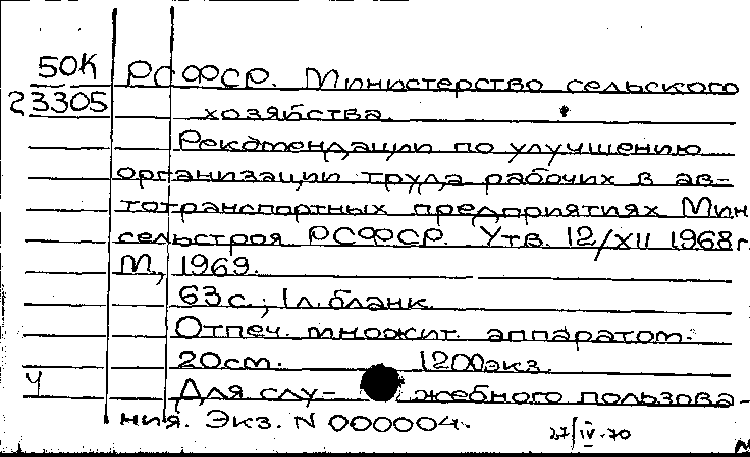 50К
23305
РСФСР. Министерство сельского
хозяйства.
Рекомендации по улучшению
организации труда рабочих в ав-
тотранспортных предприятиях Мин
сельстроя РСФСР. Утв. 12/XII 1968г.
М., 1969.
63с.; 1л. бланк.
Отпеч. множит. аппаратом.
20см. 1200экз.
Ч
Для слу- жебного пользова-
ния. Экз. N 000004.
27/IV-70